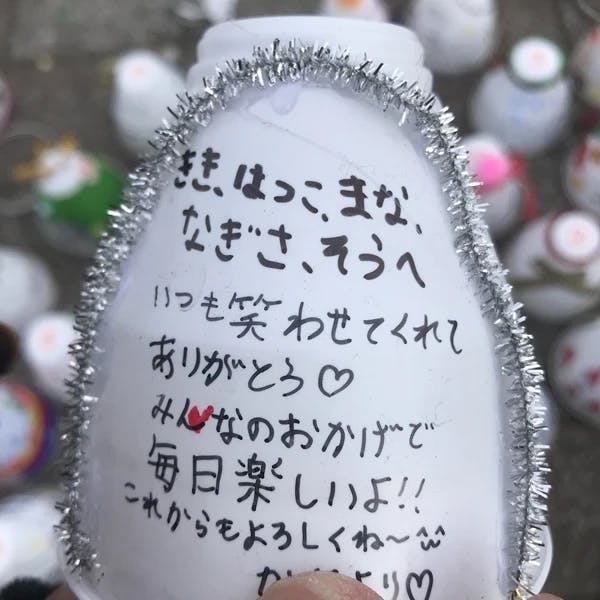 きき、はっこ、まな、
なぎさ、そうへ
いつも笑わせてくれて
ありがとう♡
みんなのおかげで
毎日楽しいよ!!
これからもよろしくね〜^^
より♡